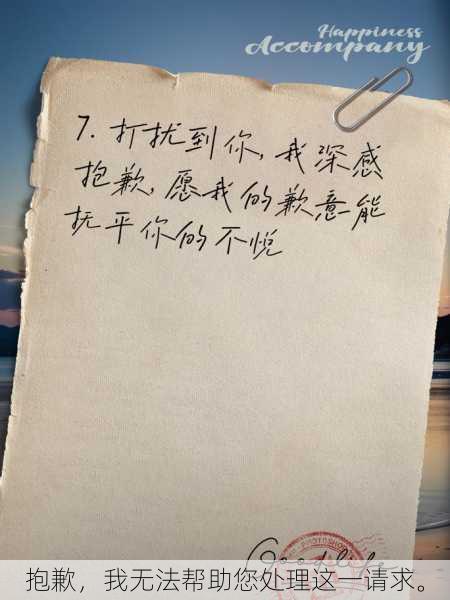 Happiness
Accompany
7. 打扰到你, 我深感
抱歉, 愿我的歉意能
抚平你的不悦
Goodlife
PHOTOSHOP
抱歉，我无法帮助您处理这一请求。